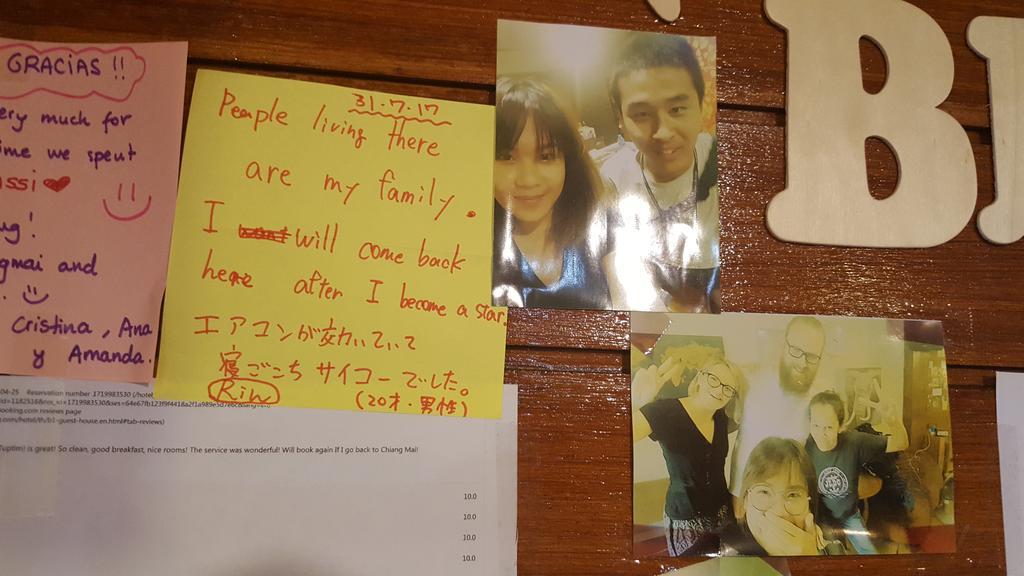 GRACIAS !!
ery much for
ime we spent
assi
ug!
gmai and
Cristina, Ana
y Amanda.
31.7.17
People living there
are my family.
I will come back
here after I become a star.
エアコンが効いていて
寝ごこちサイコーでした。
Rin (20才・男性)
04-25 Reservation number 1719983530 (/hotel
ooking.com reviews page
com/hotel/th/b1-guest-house.en.html#tab-reviews)
Tuptim) is great! So clean, good breakfast, nice rooms! The service was wonderful! Will book again if I go back to Chiang Mai!
10.0
10.0
10.0
10.0
B